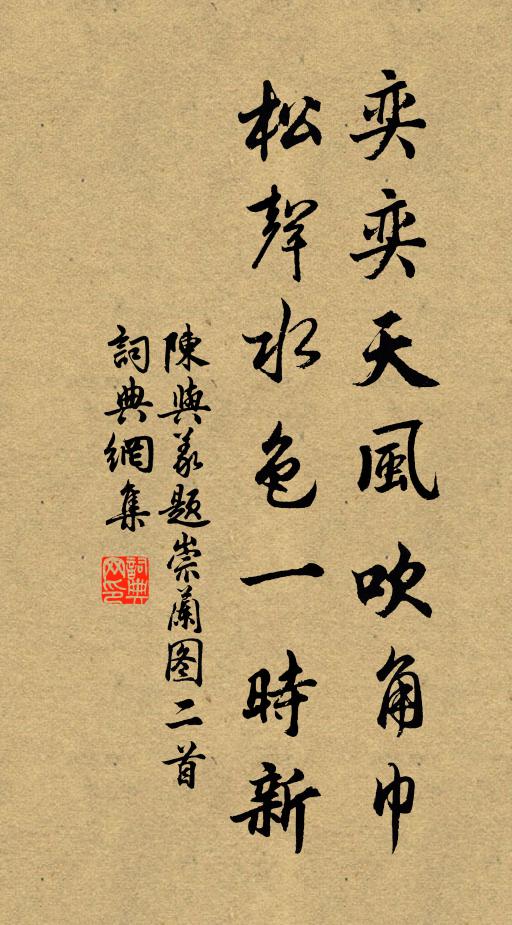 奕奕天風吹角巾
松聲水色一時新
陳與義題崇蘭图二首
詞典網集
詞典网印